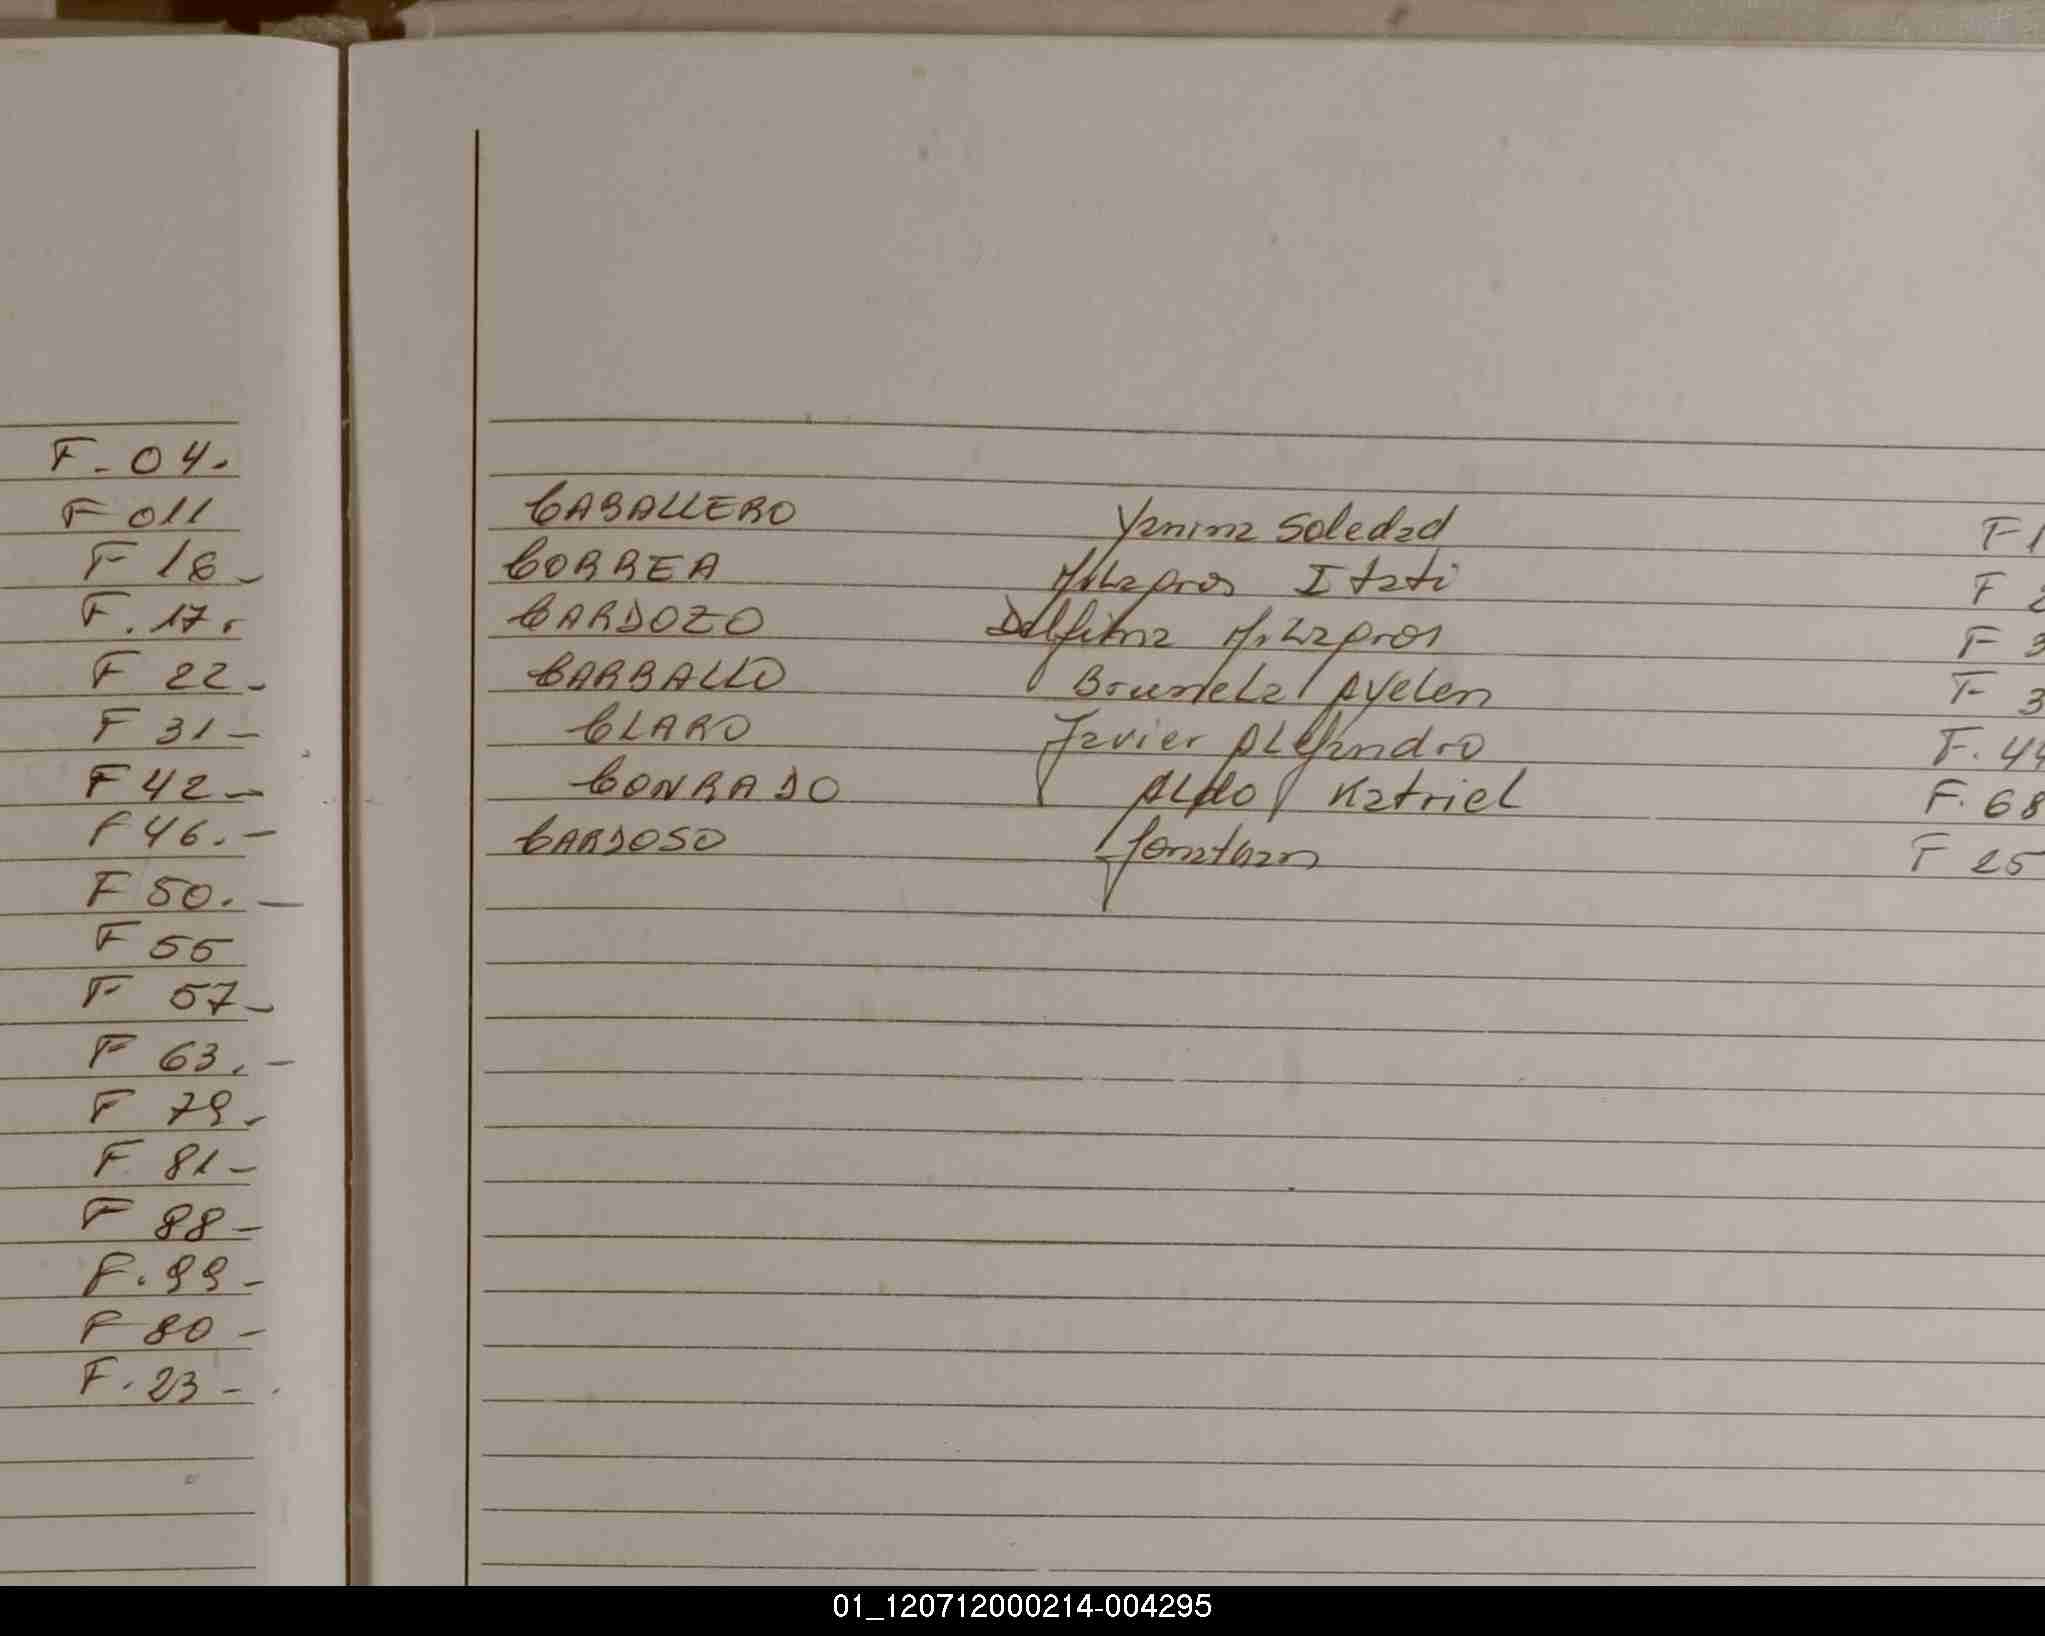 F. 04.
F 011
F 16
F. 17.
F 22 -
F 31 -
F 42 -
F 46. -
F 50. -
F 55
F 57 -
F 63. -
F 79 -
F 81 -
F 88 -
F. 99 -
F 80 -
F. 23 -
CABALLERO Yanina Soledad F 1
CORREA Milagros Itati F 2
CARDOZO Delfina Milagros F 3
CARBALLO Brunela Ayelen F 3
CLARO Javier Alejandro F. 44
CONRADO Aldo Katriel F. 68
CARDOSO Jonathan F 25
01_120712000214-004295